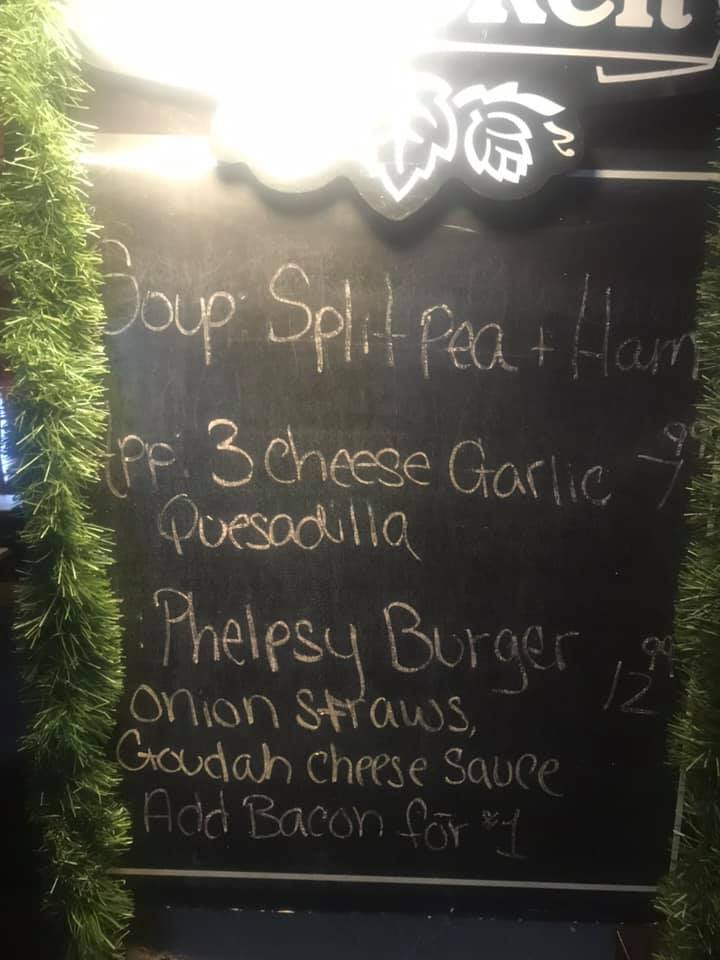 Soup: Split Pea + Ham
3 cheese Garlic 7 99
Quesadilla
Phelpsy Burger
12 99
onion straws,
Goudah cheese sauce
Add Bacon for $1